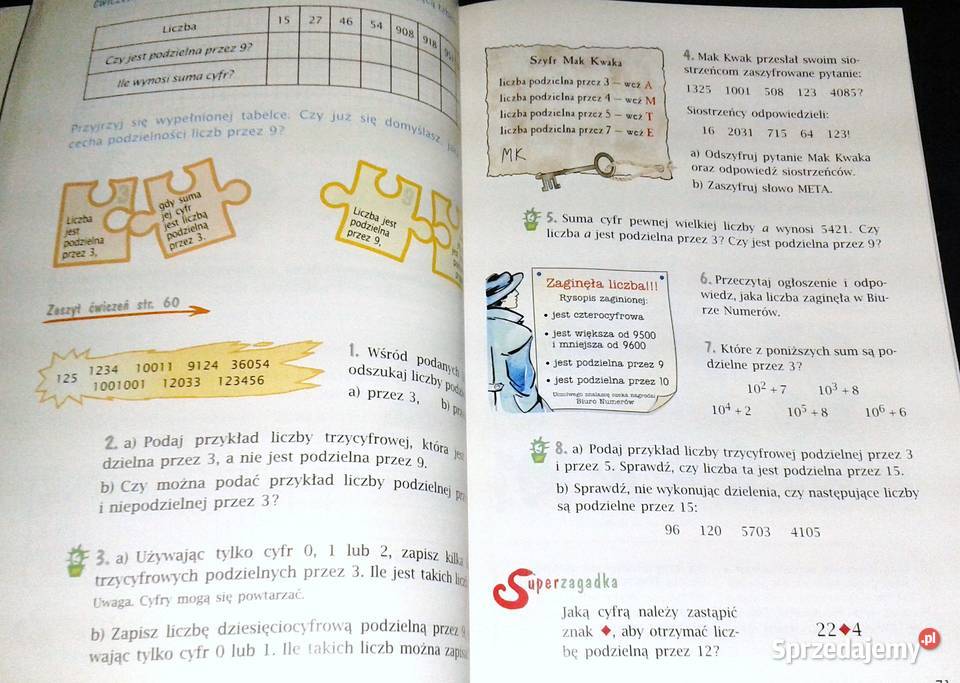 Liczba 15 27 46 54 908 918
Czy jest podzielna przez 9?
Ile wynosi suma cyfr?
Przyjrzyj się wypełnionej tabelce. Czy już się domyślasz,
cecha podzielności liczb przez 9?
3
Liczba
jest
podzielna
przez 3,
gdy suma
jej cyfr
jest liczbą
podzielną
przez 3.
9
Liczba jest
podzielna
przez 9,
Zeszyt ćwiczeń str. 60
125 1234 10011 9124 36054
1001001 12033 123456
1. Wśród podanych
odszukaj liczby
a) przez 3, b)
2. a) Podaj przykład liczby trzycyfrowej, która
dzielna przez 3, a nie jest podzielna przez 9.
b) Czy można podać przykład liczby podzielnej
i niepodzielnej przez 3?
3. a) Używając tylko cyfr 0, 1 lub 2, zapisz kilka
trzycyfrowych podzielnych przez 3. Ile jest takich
Uwaga. Cyfry mogą się powtarzać.
b) Zapisz liczbę dziesięciocyfrową podzielną przez 9
wając tylko cyfr 0 lub 1. Ile takich liczb można
Szyfr Mak Kwaka
liczba podzielna przez 3 — weź A
liczba podzielna przez 4 — weź M
liczba podzielna przez 5 — weź T
liczba podzielna przez 7 — weź E
MK
4. Mak Kwak przesłał swoim sio-
strzeńcom zaszyfrowane pytanie:
1325 1001 508 123 4085?
Siostrzeńcy odpowiedzieli:
16 2031 715 64 123!
a) Odszyfruj pytanie Mak Kwaka
oraz odpowiedź siostrzeńców.
b) Zaszyfruj słowo META.
5. Suma cyfr pewnej wielkiej liczby a wynosi 5421. Czy
liczba a jest podzielna przez 3? Czy jest podzielna przez 9?
Zaginęła liczba!!!
Rysopis zaginionej:
• jest czterocyfrowa
• jest większa od 9500
i mniejsza od 9600
• jest podzielna przez 9
• jest podzielna przez 10
Uczciwego znalazcę czeka nagroda!
Biuro Numerów
6. Przeczytaj ogłoszenie i odpo-
wiedz, jaka liczba zaginęła w Biu-
rze Numerów.
7. Które z poniższych sum są po-
dzielne przez 3?
10² + 7 10³ + 8
10⁴ + 2 10⁵ + 8 10⁶ + 6
8. a) Podaj przykład liczby trzycyfrowej podzielnej przez 3
i przez 5. Sprawdź, czy liczba ta jest podzielna przez 15.
b) Sprawdź, nie wykonując dzielenia, czy następujące liczby
są podzielne przez 15:
96 120 5703 4105
Superzagadka
Jaką cyfrą należy zastąpić
znak ♦, aby otrzymać licz-
bę podzielną przez 12?
22♦4
Sprzedajemy.pl